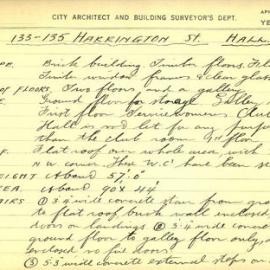 CITY ARCHITECT AND BUILDING SURVEYOR'S DEPT.
133-135 HARRINGTON St. HALL
Brick building. Timber floors.
Timber window frames & clear glass
OF FLOORS. Two floors, and a gallery
Ground floor for storage. Gallery
First floor Servicewomens Club
Hall is not let for any purpose
than the club rooms.
Flat roof over whole area, with
N.W. corner. These W.C's have been
About 57'.0"
About 90 x 44'
① 3'.4" wide concrete stair from ground
to flat roof brick wall enclosed
doors on landings ② 3'.4" wide concrete
ground floor to gallery floor only,
enclosed no fire doors
③ 5'.3" wide concrete external steps on